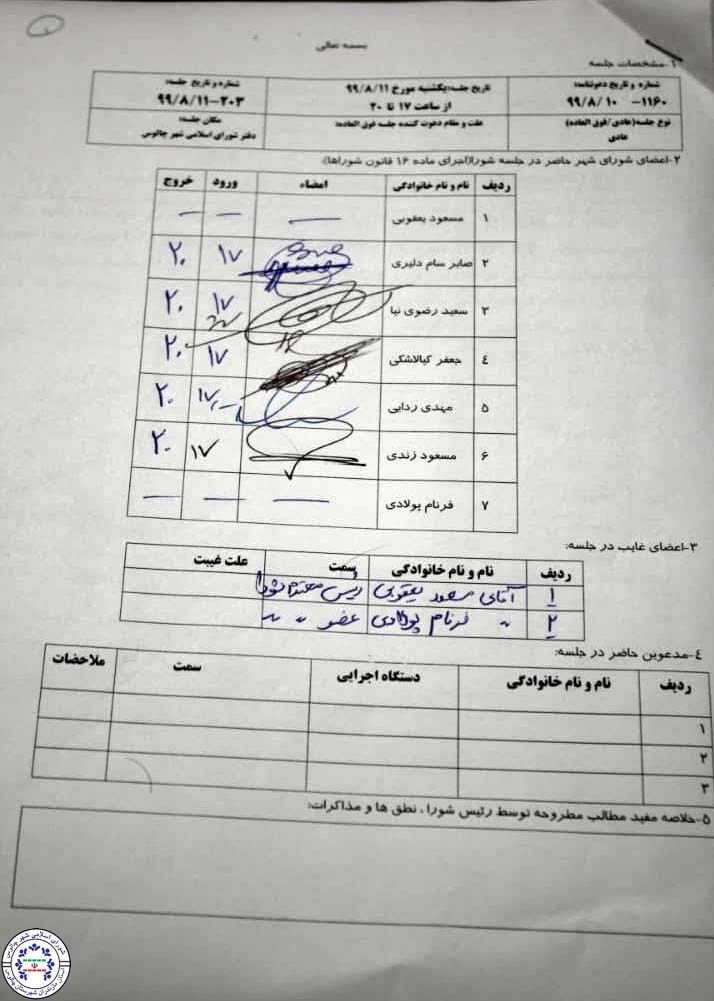 بسمه تعالی
۱-مشخصات جلسه
شماره و تاریخ دعوتنامه: تاریخ جلسه:یکشنبه مورخ ۹۹/۸/۱۱ شماره و تاریخ جلسه:
۱۱۶۰- ۹۹/۸/۱۰ از ساعت ۱۷ تا ۲۰ ۲۰۳-۹۹/۸/۱۱
نوع جلسه(عادی/فوق العاده) علت و مقام دعوت کننده جلسه فوق العاده: مکان جلسه:
عادی دفتر شورای اسلامی شهر چالوس
۲-اعضای شورای شهر حاضر در جلسه شورا(اجرای ماده ۱۶ قانون شوراها):
ردیف نام و نام خانوادگی امضاء ورود خروج
۱ مسعود یعقوبی — — —
۲ صابر سام دلیری ۱۷ ۲۰
۳ سعید رضوی نیا ۱۷ ۲۰
۴ جعفر کیالاشکی ۱۷ ۲۰
۵ مهدی ردایی ۱۷ ۲۰
۶ مسعود زندی ۱۷ ۲۰
۷ فرنام پولادی — — —
۳-اعضای غایب در جلسه:
ردیف نام و نام خانوادگی سمت علت غیبت
۱ آقای مسعود یعقوبی رئیس محترم شورا
۲ 〃 فرنام پولادی عضو 〃 〃
۴-مدعوین حاضر در جلسه:
ردیف نام و نام خانوادگی دستگاه اجرایی سمت ملاحضات
۱
۲
۳
۵-خلاصه مفید مطالب مطروحه توسط رئیس شورا ، نطق ها و مذاکرات:
شورای اسلامی شهر چالوس
استان مازندران شهرستان چالوس